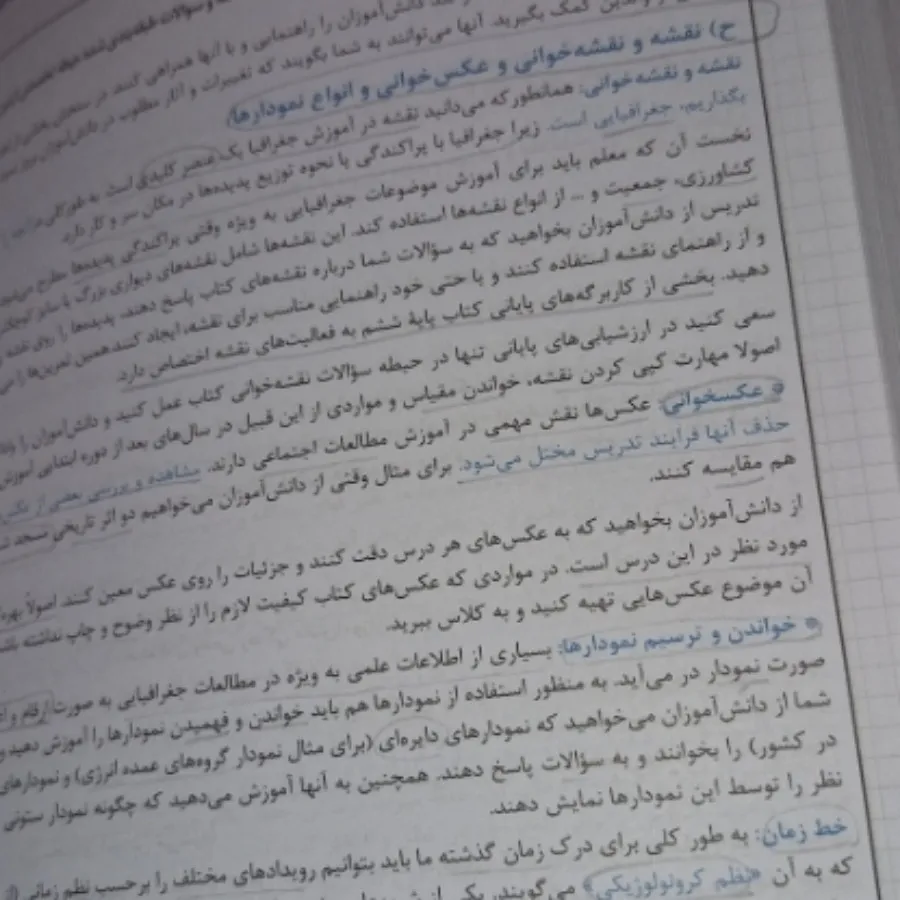 و سؤالات طبقه‌بندی شده
دانش‌آموزان را راهنمایی و با آنها همراهی کنند. در سنجش بخشی از
والدین کمک بگیرید. آنها می‌توانند به شما بگویند که تغییرات و آثار مطلوب در دانش‌آموزان
ح) نقشه و نقشه‌خوانی و عکس‌خوانی و انواع نمودارها:
نقشه و نقشه‌خوانی: همانطور که می‌دانید نقشه در آموزش جغرافیا یک عنصر کلیدی است. به طور کلی
بگذاریم، جغرافیایی است. زیرا جغرافیا با پراکندگی یا نحوه توزیع پدیده‌ها در مکان سر و کار دارد.
نخست آن که معلم باید برای آموزش موضوعات جغرافیایی به ویژه وقتی پراکندگی پدیده‌ها مطرح
کشاورزی، جمعیت و ... از انواع نقشه‌ها استفاده کند. این نقشه‌ها شامل نقشه‌های دیواری بزرگ یا سایر
تدریس از دانش‌آموزان بخواهید که به سؤالات شما درباره نقشه‌های کتاب پاسخ دهند، پدیده‌ها را روی نقشه
و از راهنمای نقشه استفاده کنند و یا حتی خود راهنمایی مناسب برای نقشه، ایجاد کنند همین تمرین‌ها را
دهید. بخشی از کاربرگه‌های پایانی کتاب پایۀ ششم به فعالیت‌های نقشه اختصاص دارد.
سعی کنید در ارزشیابی‌های پایانی تنها در حیطه سؤالات نقشه‌خوانی کتاب عمل کنید و دانش‌آموزان را
اصولا مهارت کپی کردن نقشه، خواندن مقیاس و مواردی از این قبیل در سال‌های بعد از دوره ابتدایی آموزش
عکسخوانی: عکس‌ها نقش مهمی در آموزش مطالعات اجتماعی دارند. مشاهده و بررسی بعضی از
حذف آنها فرایند تدریس مختل می‌شود. برای مثال وقتی از دانش‌آموزان می‌خواهیم دو اثر تاریخی
هم مقایسه کنند.
از دانش‌آموزان بخواهید که به عکس‌های هر درس دقت کنند و جزئیات را روی عکس معین کنند. اصولاً
مورد نظر در این درس است. در مواردی که عکس‌های کتاب کیفیت لازم را از نظر وضوح و چاپ نداشته
آن موضوع عکس‌هایی تهیه کنید و به کلاس ببرید.
خواندن و ترسیم نمودارها: بسیاری از اطلاعات علمی به ویژه در مطالعات جغرافیایی به صورت ارقام و
صورت نمودار در می‌آید. به منظور استفاده از نمودارها هم باید خواندن و فهمیدن نمودارها را آموزش دهید و
شما از دانش‌آموزان می‌خواهید که نمودارهای دایره‌ای (برای مثال نمودار گروه‌های عمده انرژی) و نمودارهای
در کشور) را بخوانند و به سؤالات پاسخ دهند. همچنین به آنها آموزش می‌دهید که چگونه نمودار ستونی
نظر را توسط این نمودارها نمایش دهند.
خط زمان: به طور کلی برای درک زمان گذشته ما باید بتوانیم رویدادهای مختلف را برحسب نظم زمانی
که به آن «نظم کرونولوژیکی» می‌گویند. یکی از